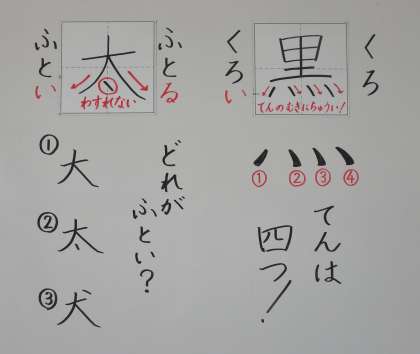 ふとる
太
わすれない
ふとい
くろ
黒
てんのむきにちゅうい!
くろい
どれが
ふとい?
①大
②太
③犬
① ② ③ ④
てんは
四つ!